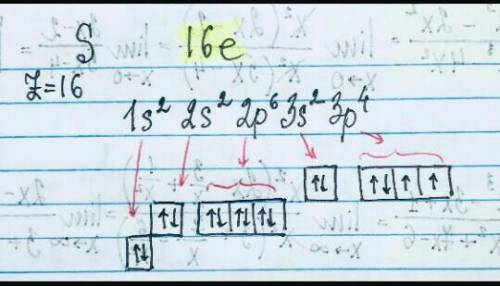 S 16e
Z=16
1s² 2s² 2p⁶ 3s² 3p⁴
↑↓ ↑↓ ↑ ↑
↑↓ ↑↓ ↑↓ ↑↓
↑↓